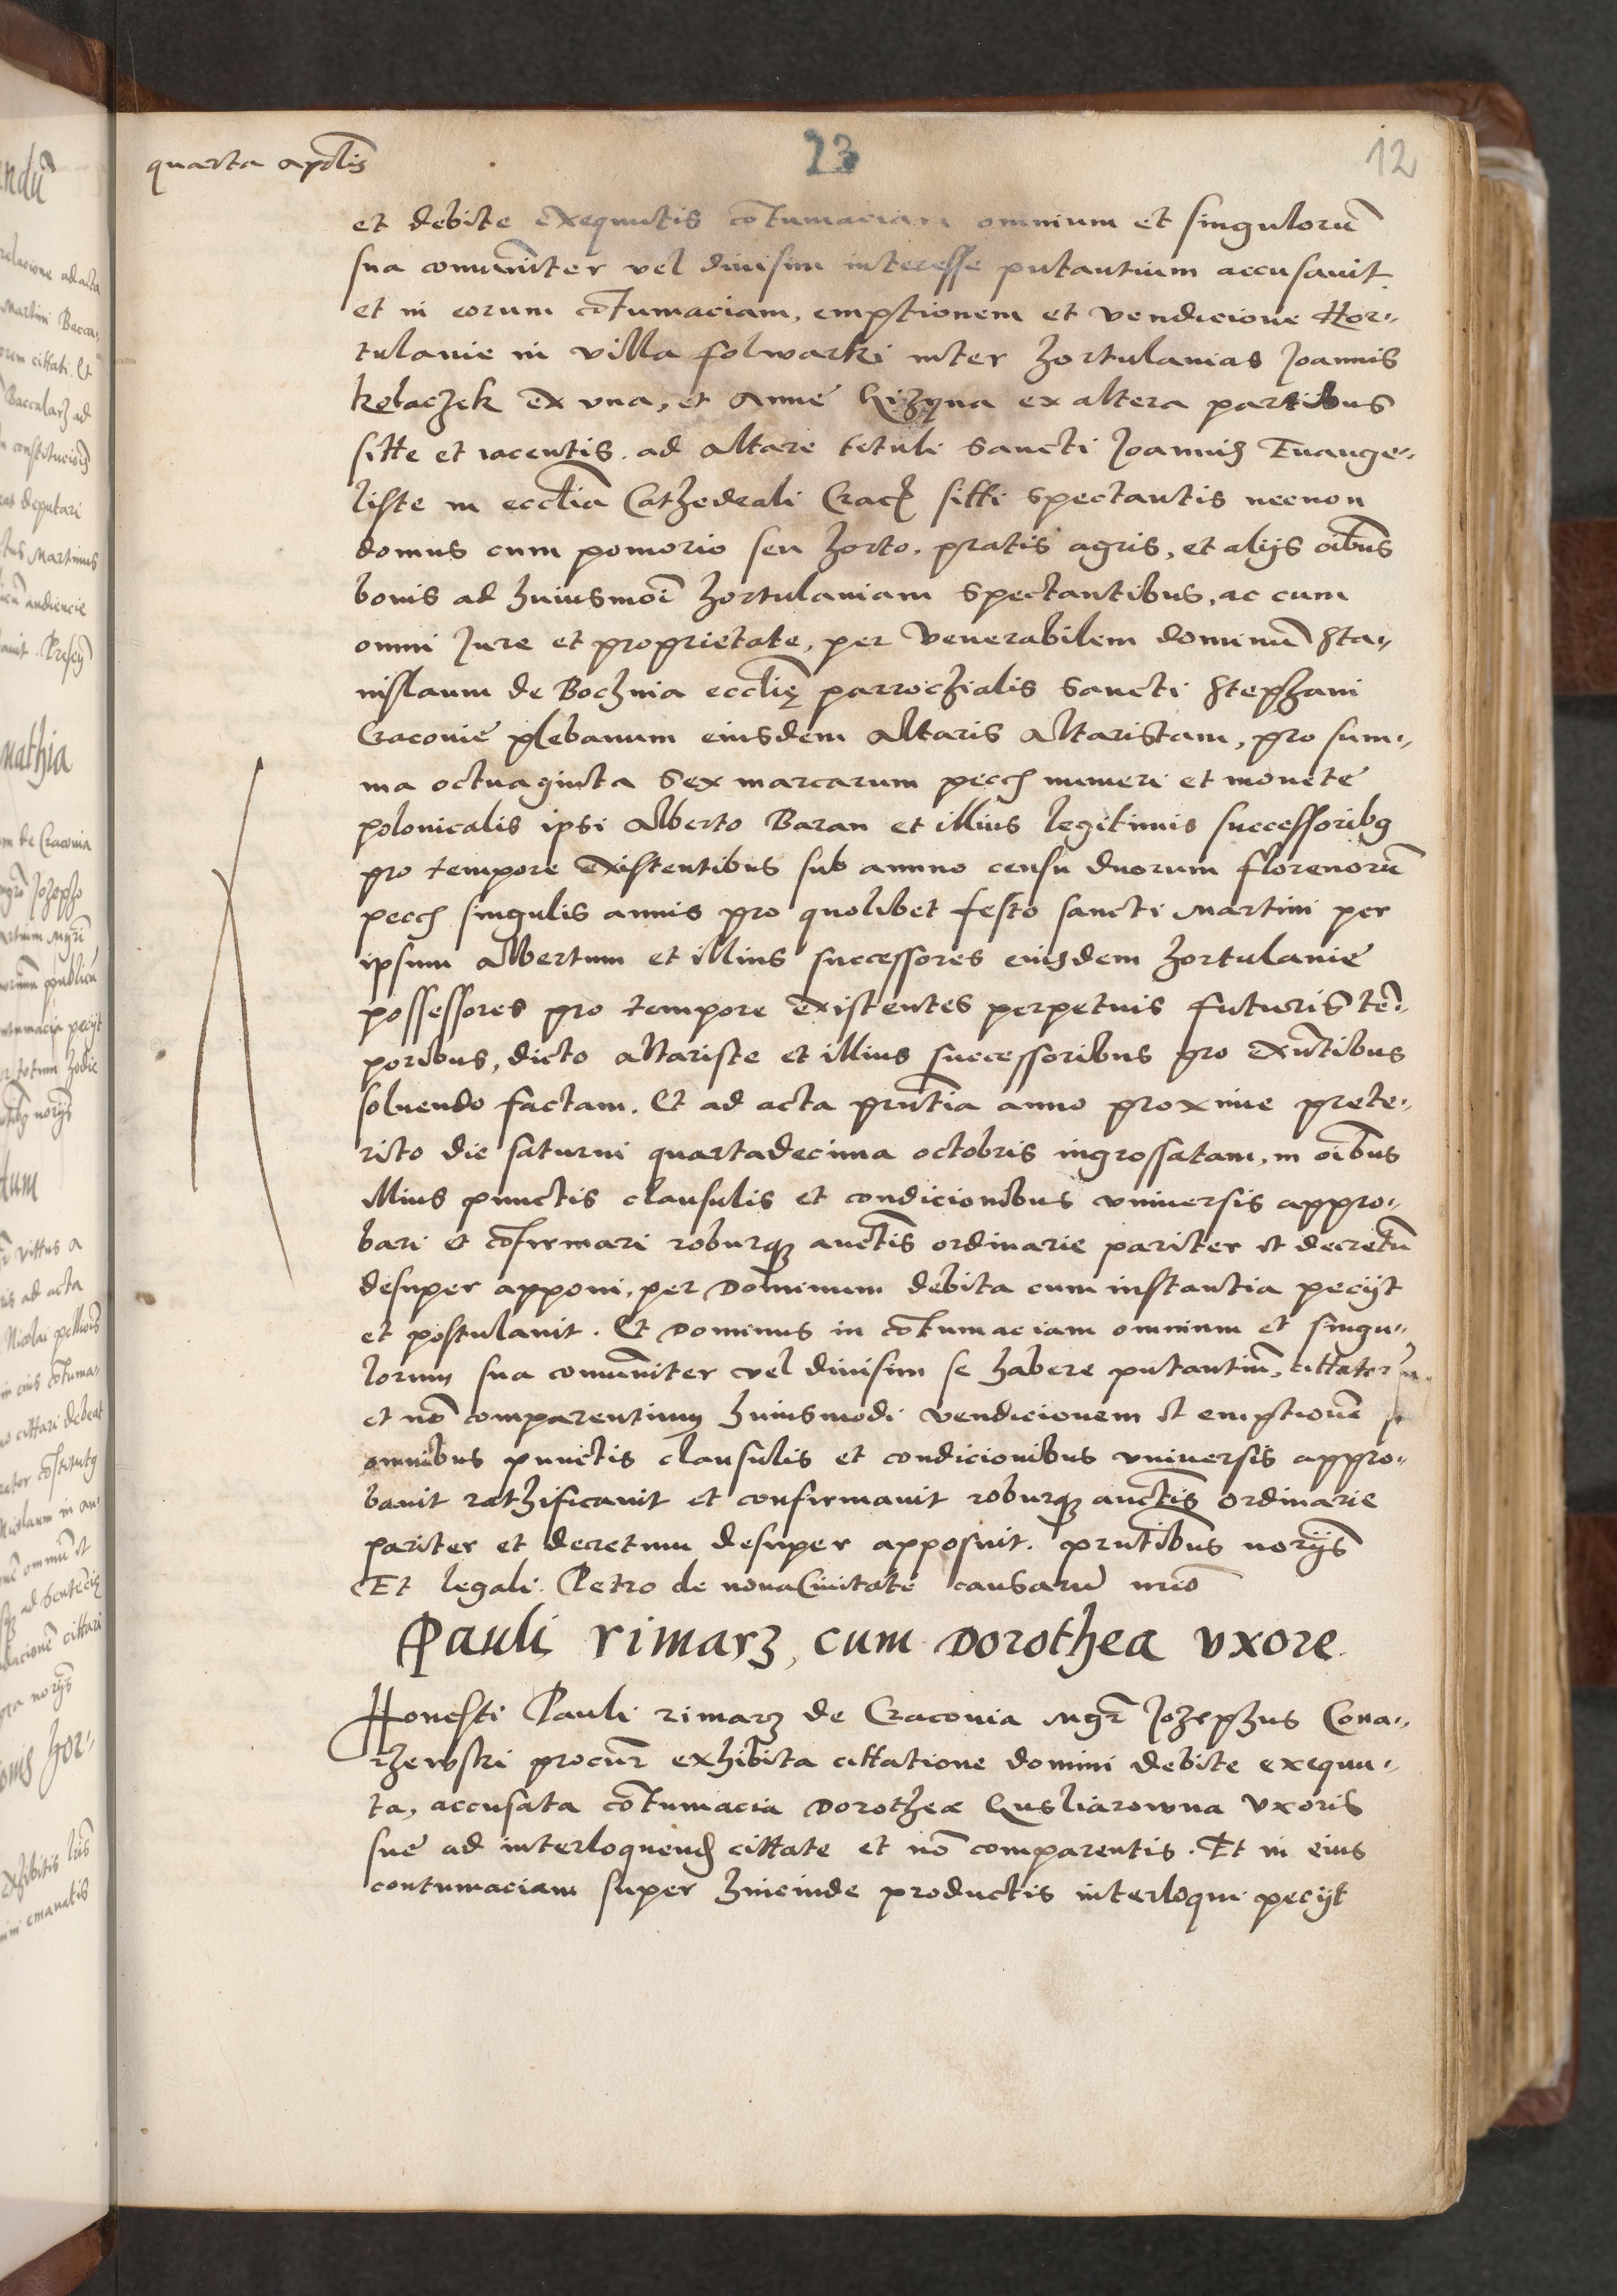 quarta aprilis
23
12
et debite exequutis cōtumaciam omnium et singulorū
sua comuniter vel diuisim interesse putantium accusauit
et in eorum cōtumaciam, emptionem et vendicione Hor-
tulanie in villa folwarki inter hortulanias Joannis
kołaczek ex vna, et Anne Gizyna ex altera partibus
sitte et iacentis. ad Altare tituli Sancti Joannis Euange-
liste in ecclīa Cathedrali Crac sitti spectantis necnon
domus cum pomorio seu horto, pratis agris, et alijs oībus
bonis ad huiusmoī hortulaniam spectantibus, ac cum
omni Jure et proprietate, per Venerabilem dominū Sta-
nislaum de Bochnia ecclię parrochialis Sancti Stephani
Craconie plebanum eiusdem Altaris Altaristam, pro sum-
ma octuaginta Sex marcarum pecc numeri et monete
polonicalis ipsi Alberto Baran et illius legitimis successoribq
pro tempore existentibus sub annuo censu duorum florenorū
pecc singulis annis pro quolibet festo sancti Martini per
ipsum Albertum et illius successores eiusdem hortulanie
possessores pro tempore existentes perpetuis futuris tē-
poribus, dicto altariste et illius successoribus pro exntibus
soluendo factam. Et ad acta prntia anno proxime prete-
rito die saturni quartadecima octobris ingrossatam, in oībus
illius punctis clausulis et condicionibus vniuersis appro-
bari et cōfirmari roburqz auctis ordinarie pariter et decretū
desuper apponi, per Dominum debita cum instantia pecijt
et postulauit. Et Dominus in cōtumaciam omnium et singu-
lorum sua comuniter vel diuisim se habere putantiū, cittator
et nō comparentium huiusmodi vendicionem et emptionē
omnibus punctis clausulis et condicionibus vniuersis appro-
bauit rathificauit et confirmauit roburqz auctis ordinarie
pariter et decretum desuper apposuit. prntibus norijs
Et legali Petro de noua Ciuitate causarū nrio
Pauli rimarz, cum Dorothea vxore.
Honesti Pauli rimarz de Craconia Mgr Jozephus Cona-
rzewski procur exhibita cittatione domini debite exequu-
ta, accusata cōtumacia Dorothee Gusliarowna Vxoris
sue ad interloquend cittate et nō comparentis. Et in eius
contumaciam super hincinde productis interloqui pecijt